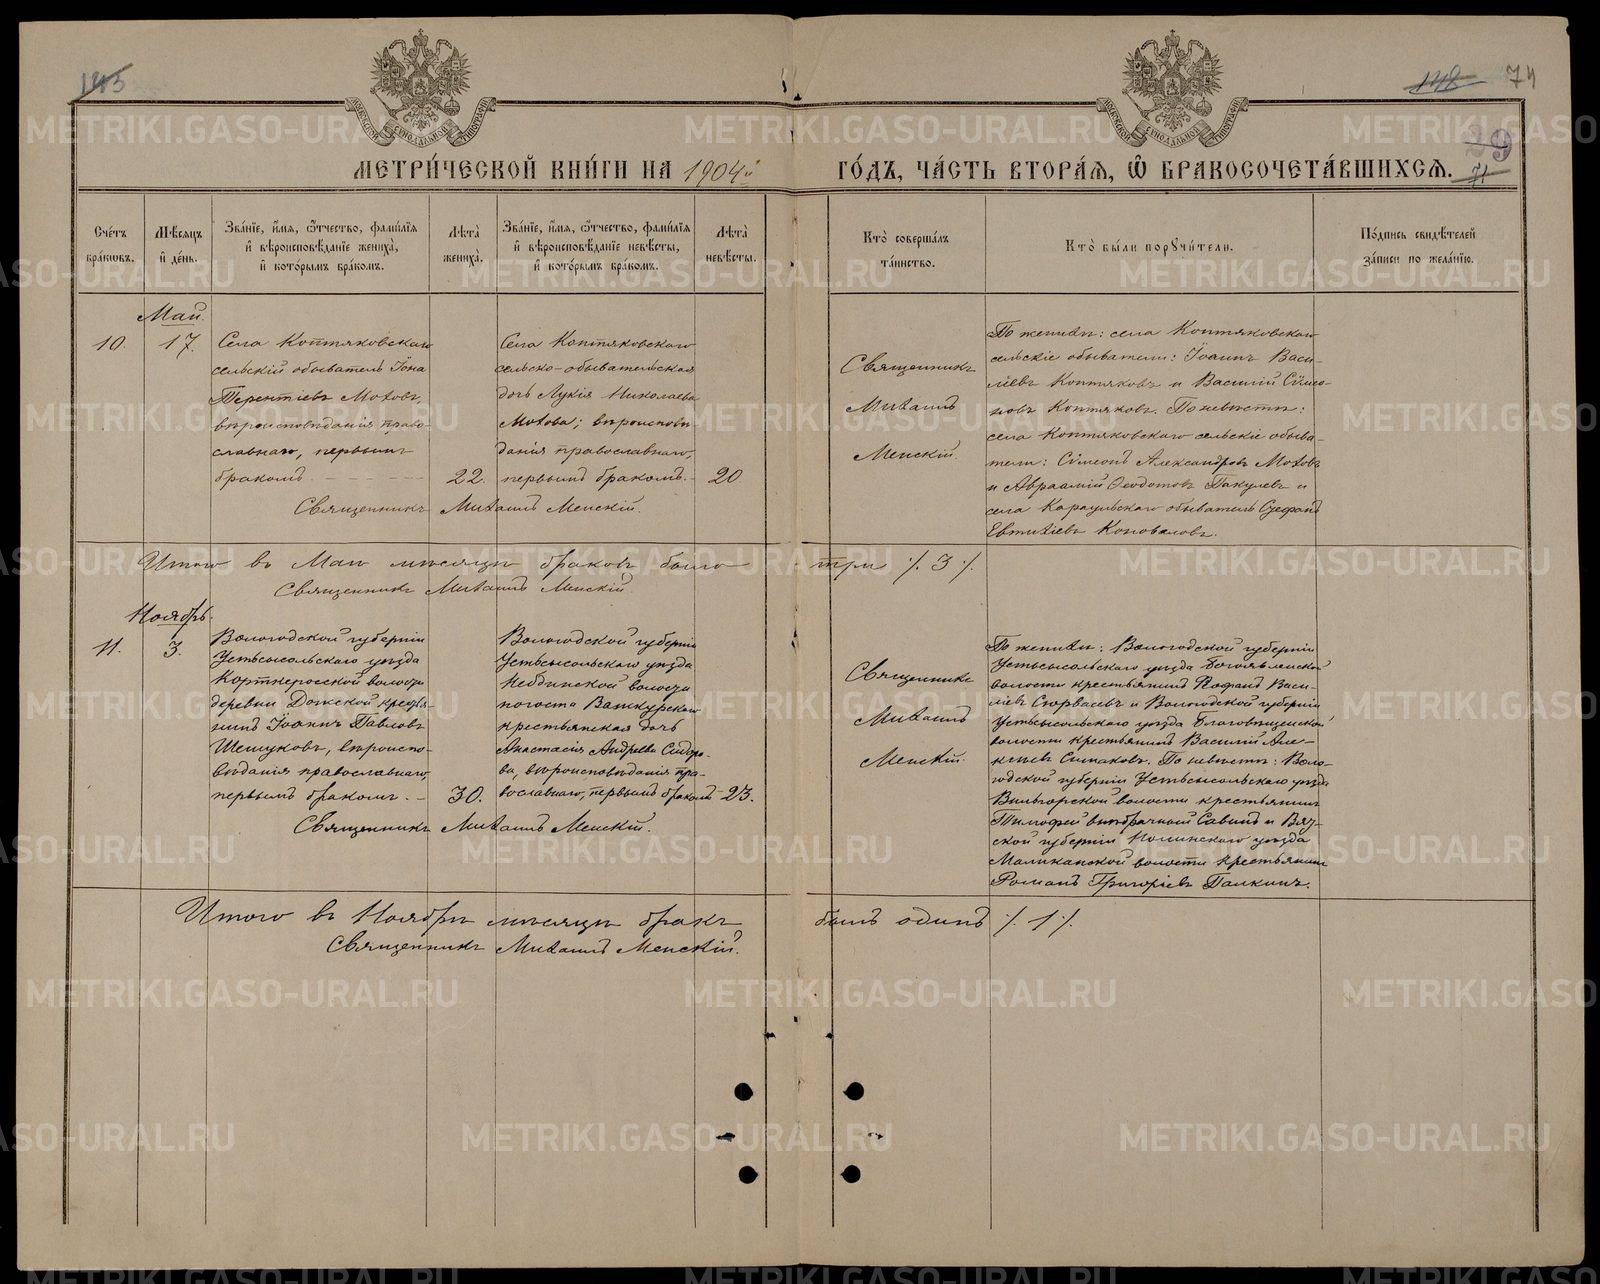 145
148 74
29
71
МЕТРИ́ЧЕСКОЙ КНИ́ГИ НА 1904й ГО́ДЪ, ЧА́СТЬ ВТОРА́Я, Ѡ БРАКОСОЧЕТА́ВШИХСЯ.
Сче́тъ бра́ковъ.
Мѣ́сяцъ и́ де́нь.
Зва́нїе, и́мя, ѻ́тчество, фами́лїя и́ вѣроисповѣ́данїе жениха̀, и́ кото́рымъ бра́комъ.
Лѣ́та жениха̀.
Зва́нїе, и́мя, ѻ́тчество, фами́лїя и́ вѣроисповѣ́данїе невѣ́сты, и́ кото́рымъ бра́комъ.
Лѣ́та невѣ́сты.
Кто̀ соверша́лъ та́инство.
Кто̀ бы́ли порꙋчи́тели.
По́дпись свидѣ́телей за́писи по жела́нїю.
Май.
10.
17.
Села Коптяковскаго
сельскій обыватель Іона
Терентіевъ Моховъ,
вѣроисповѣданія право-
славнаго, первымъ
бракомъ.
22.
Села Коптяковскаго
сельско-обывательская
дочь Лукія Николаева
Мохова; вѣроисповѣ-
данія православнаго,
первымъ бракомъ.-
20
Священникъ Михаилъ Менскій.
Священникъ
Михаилъ
Менскій.
По женихѣ: села Коптяковскаго
сельскіе обыватели: Іоаннъ Васи-
ліевъ Коптяковъ и Василій Сѵмео-
новъ Коптяковъ. По невѣстѣ:
села Коптяковскаго сельскіе обыва-
тели: Сѵмеонъ Александровъ Моховъ
и Авраамій Ѳеодотовъ Пакулевъ и
села Караульскаго обыватель Стефанъ
Евтихіевъ Коноваловъ.
Итого въ Маѣ мѣсяцѣ браковъ было три ./. 3 ./.
Священникъ Михаилъ Менскій.
Ноябрь.
11.
3.
Вологодской губерніи
Устьсысольскаго уѣзда
Корткеросской волости
деревни Дожской кресть-
янинъ Іоаннъ Павловъ
Шешуковъ, вѣроиспо-
вѣданія православнаго,
первымъ бракомъ. -
30.
Вологодской губерніи
Устьсысольскаго уѣзда
Небдинской волости
погоста
крестьянская дочь
Анастасія Андреева Сидоро-
ва, вѣроисповѣданія пра-
вославнаго, первымъ бракомъ
23.
Священникъ Михаилъ Менскій.
Священникъ
Михаилъ
Менскій.
По женихѣ: Вологодской губерніи
Устьсысольскаго уѣзда Богоявленской
волости крестьянинъ Васи-
ліевъ и Вологодской губерніи
Устьсысольскаго уѣзда Благовѣщенской
волости крестьянинъ Василій Але-
По невѣстѣ: Воло-
годской губерніи Устьсысольскаго уѣзда
Вильгорской волости крестьянинъ
Тимофей внѣбрачной Савинъ и Вят-
ской губерніи Нолинскаго уѣзда
Маликанской волости крестьянинъ
Романъ Григоріевъ Палкинъ.
Итого въ Ноябрѣ мѣсяцѣ бракъ былъ одинъ ./. 1 ./.
Священникъ Михаилъ Менскій.
METRIKI.GASO-URAL.RU